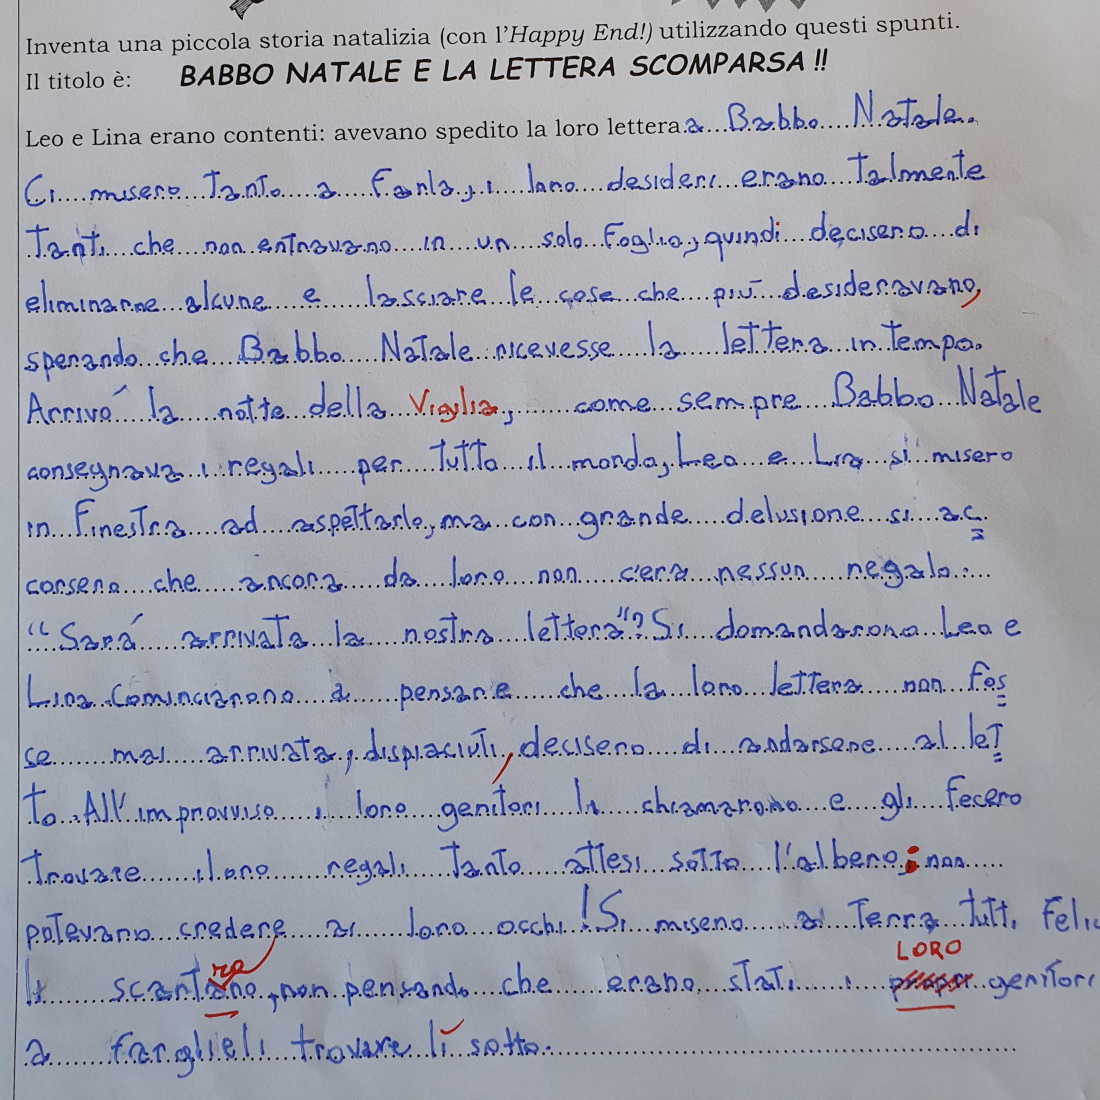 Inventa una piccola storia natalizia (con l'Happy End!) utilizzando questi spunti.
Il titolo è: BABBO NATALE E LA LETTERA SCOMPARSA !!
Leo e Lina erano contenti: avevano spedito la loro lettera a Babbo Natale.
Ci misero tanto a farla, i loro desideri erano talmente
tanti che non entravano in un solo foglio, quindi decisero di
eliminarne alcune e lasciare le cose che più desideravano,
sperando che Babbo Natale ricevesse la lettera in tempo.
Arrivó la notte della Vigilia, come sempre Babbo Natale
consegnava i regali per tutto il mondo, Leo e Lina si misero
in finestra ad aspettarlo, ma con grande delusione si ac
corsero che ancora da loro non c'era nessun regalo...
"Sará arrivata la nostra lettera"? Si domandarono Leo e
Lina. Cominciarono a pensare che la loro lettera non fos
se mai arrivata, dispiaciuti, decisero di andarsene al let
to. All'improvviso i loro genitori li chiamarono e gli fecero
trovare i loro regali tanto attesi sotto l'albero; non
potevano credere ai loro occhi! Si misero a terra tutti felici
scartare, non pensando che erano stati i LORO genitori
a farglieli trovare lì sotto.